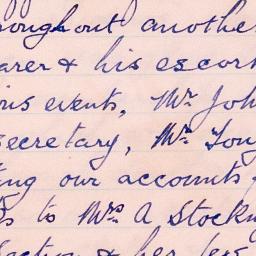 roughout another
arer & his escort
ous events, Mr Joh
Secretary, Mr Tong
ting our accounts
s to Mrs A Stockw
& her